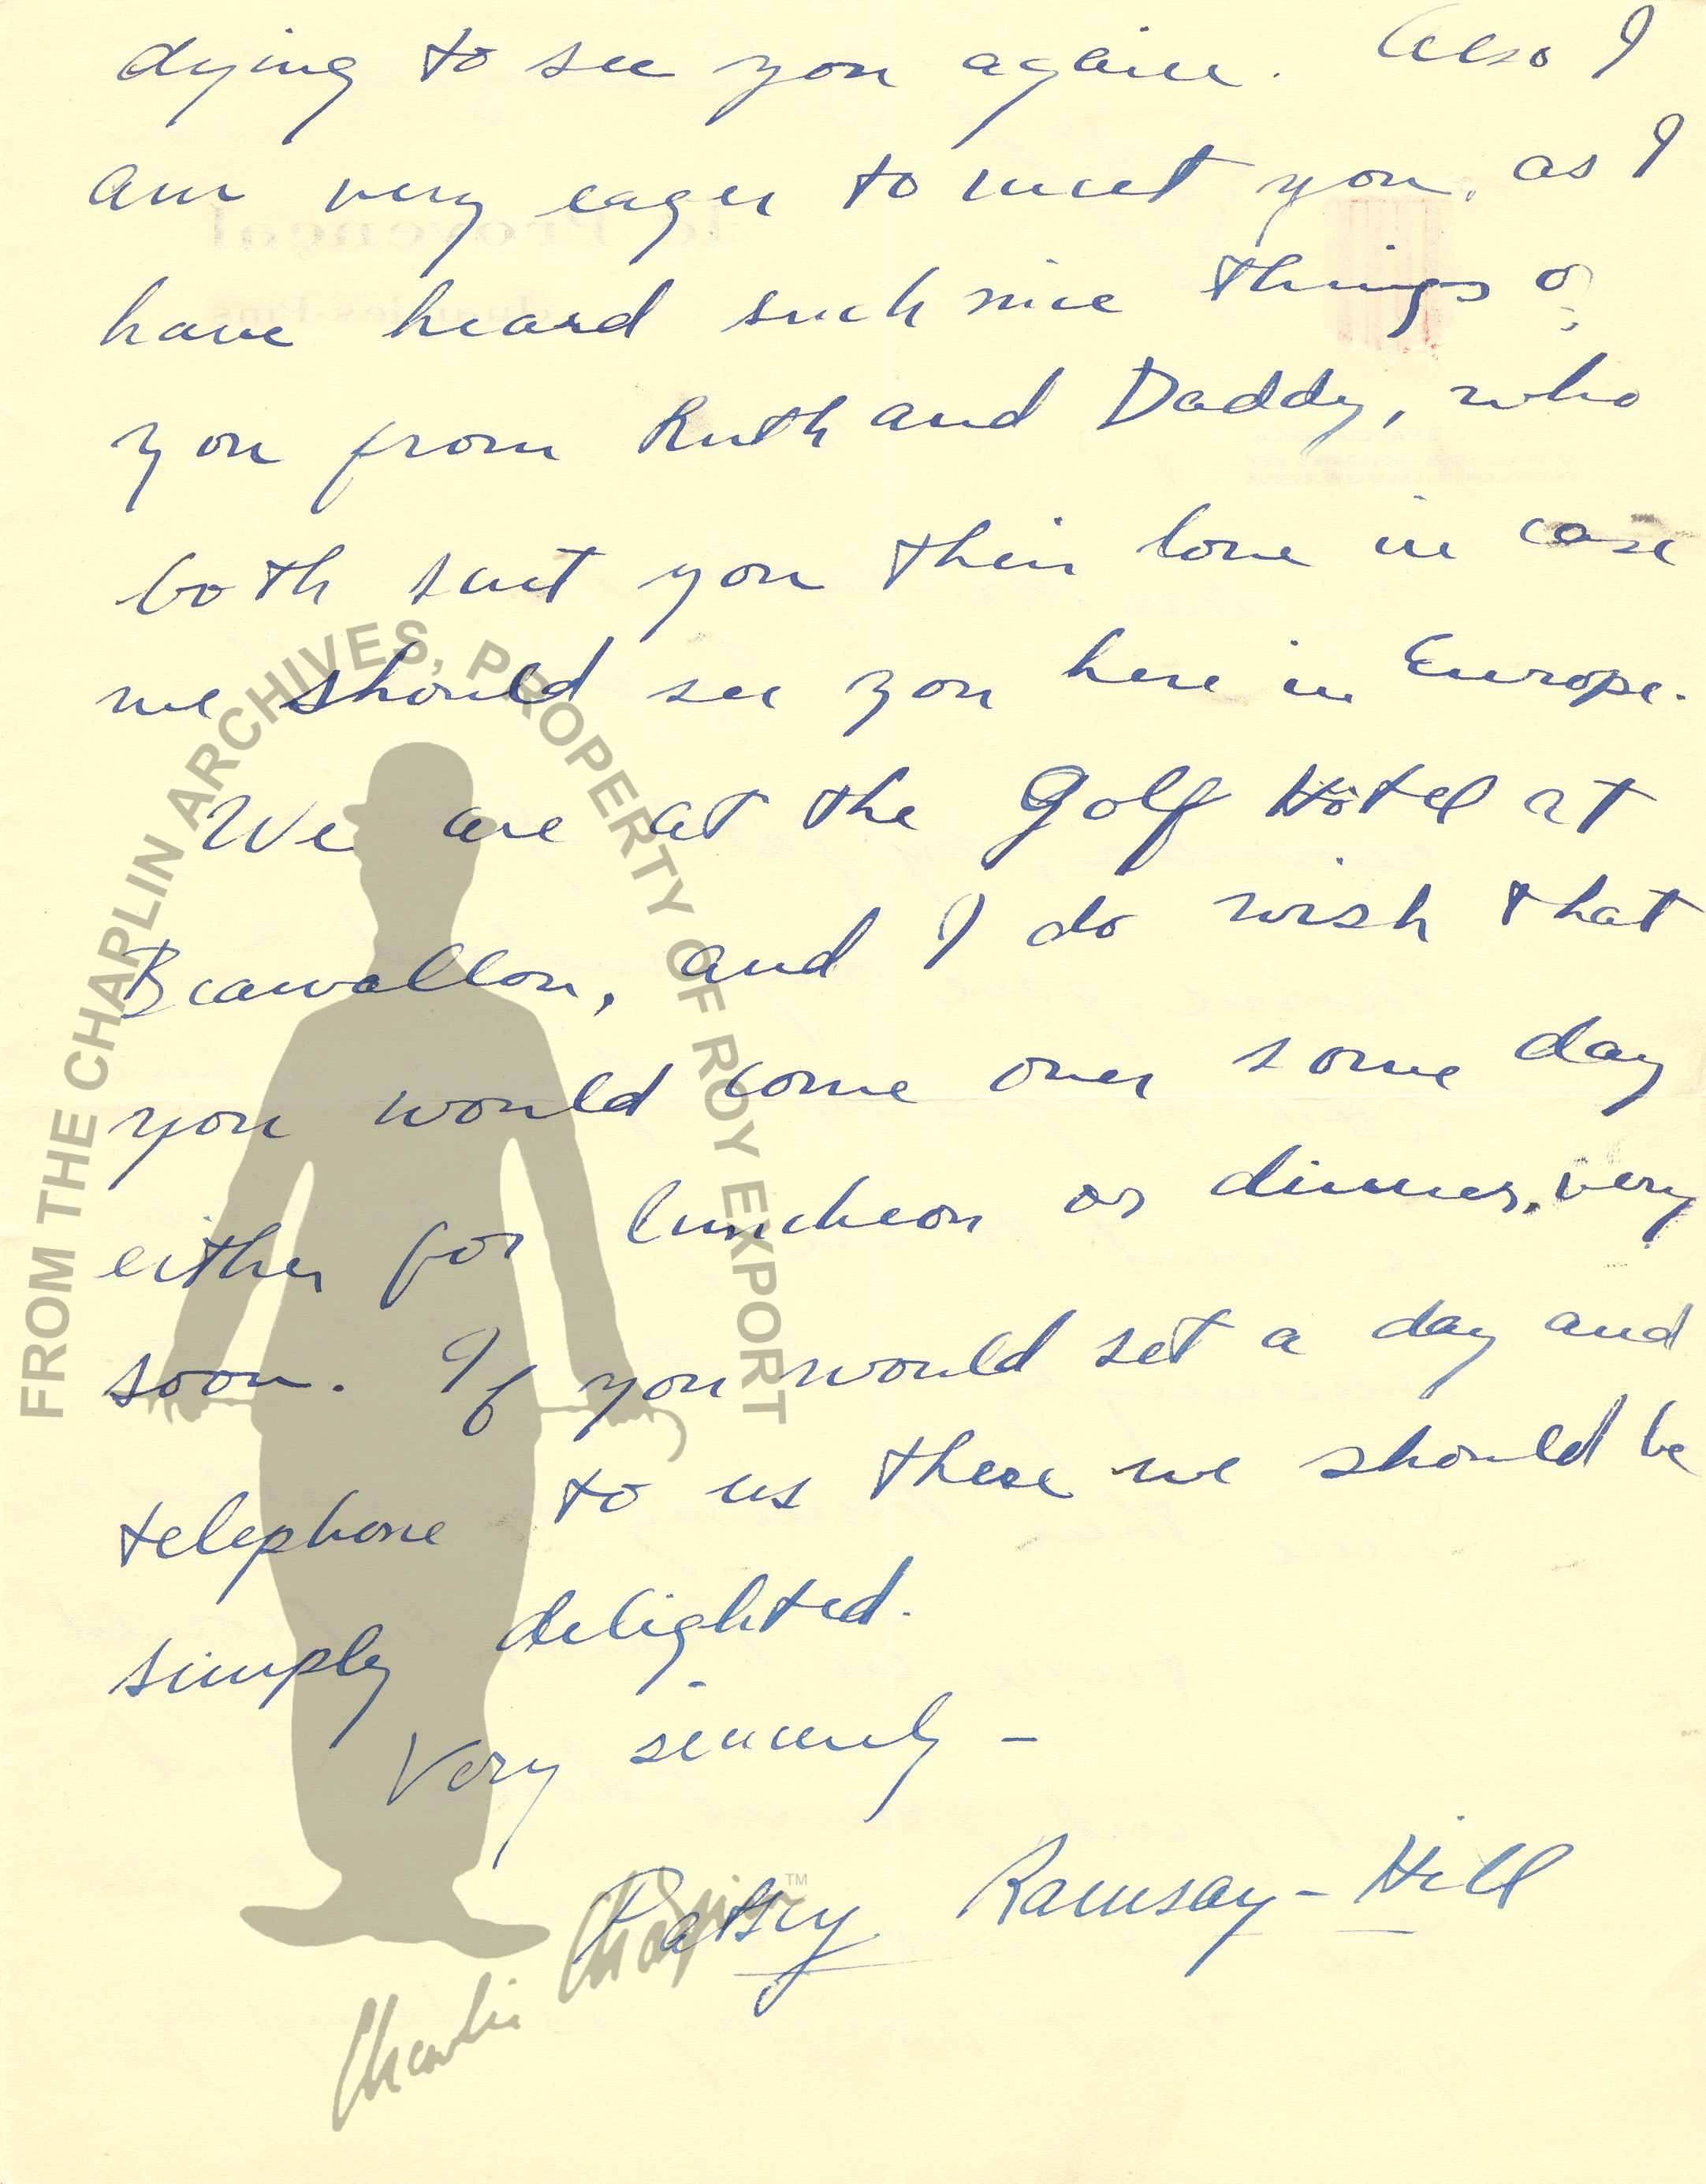 dying to see you again. Also I
am very eager to meet you, as I
have heard such nice things of
you from Ruth and Daddy, who
both sent you their love in case
we should see you here in Europe.
We are at the Golf Hôtel at
Beauvallon, and I do wish that
you would come over some day
either for luncheon or dinner, very
soon. If you would set a day and
telephone to us there we should be
simply delighted.
Very sincerely -
Patsy Ramsay-Hill
FROM THE CHAPLIN ARCHIVES, PROPERTY OF ROY EXPORT
Charlie Chaplin™
le Provençal
Juan-les-Pins